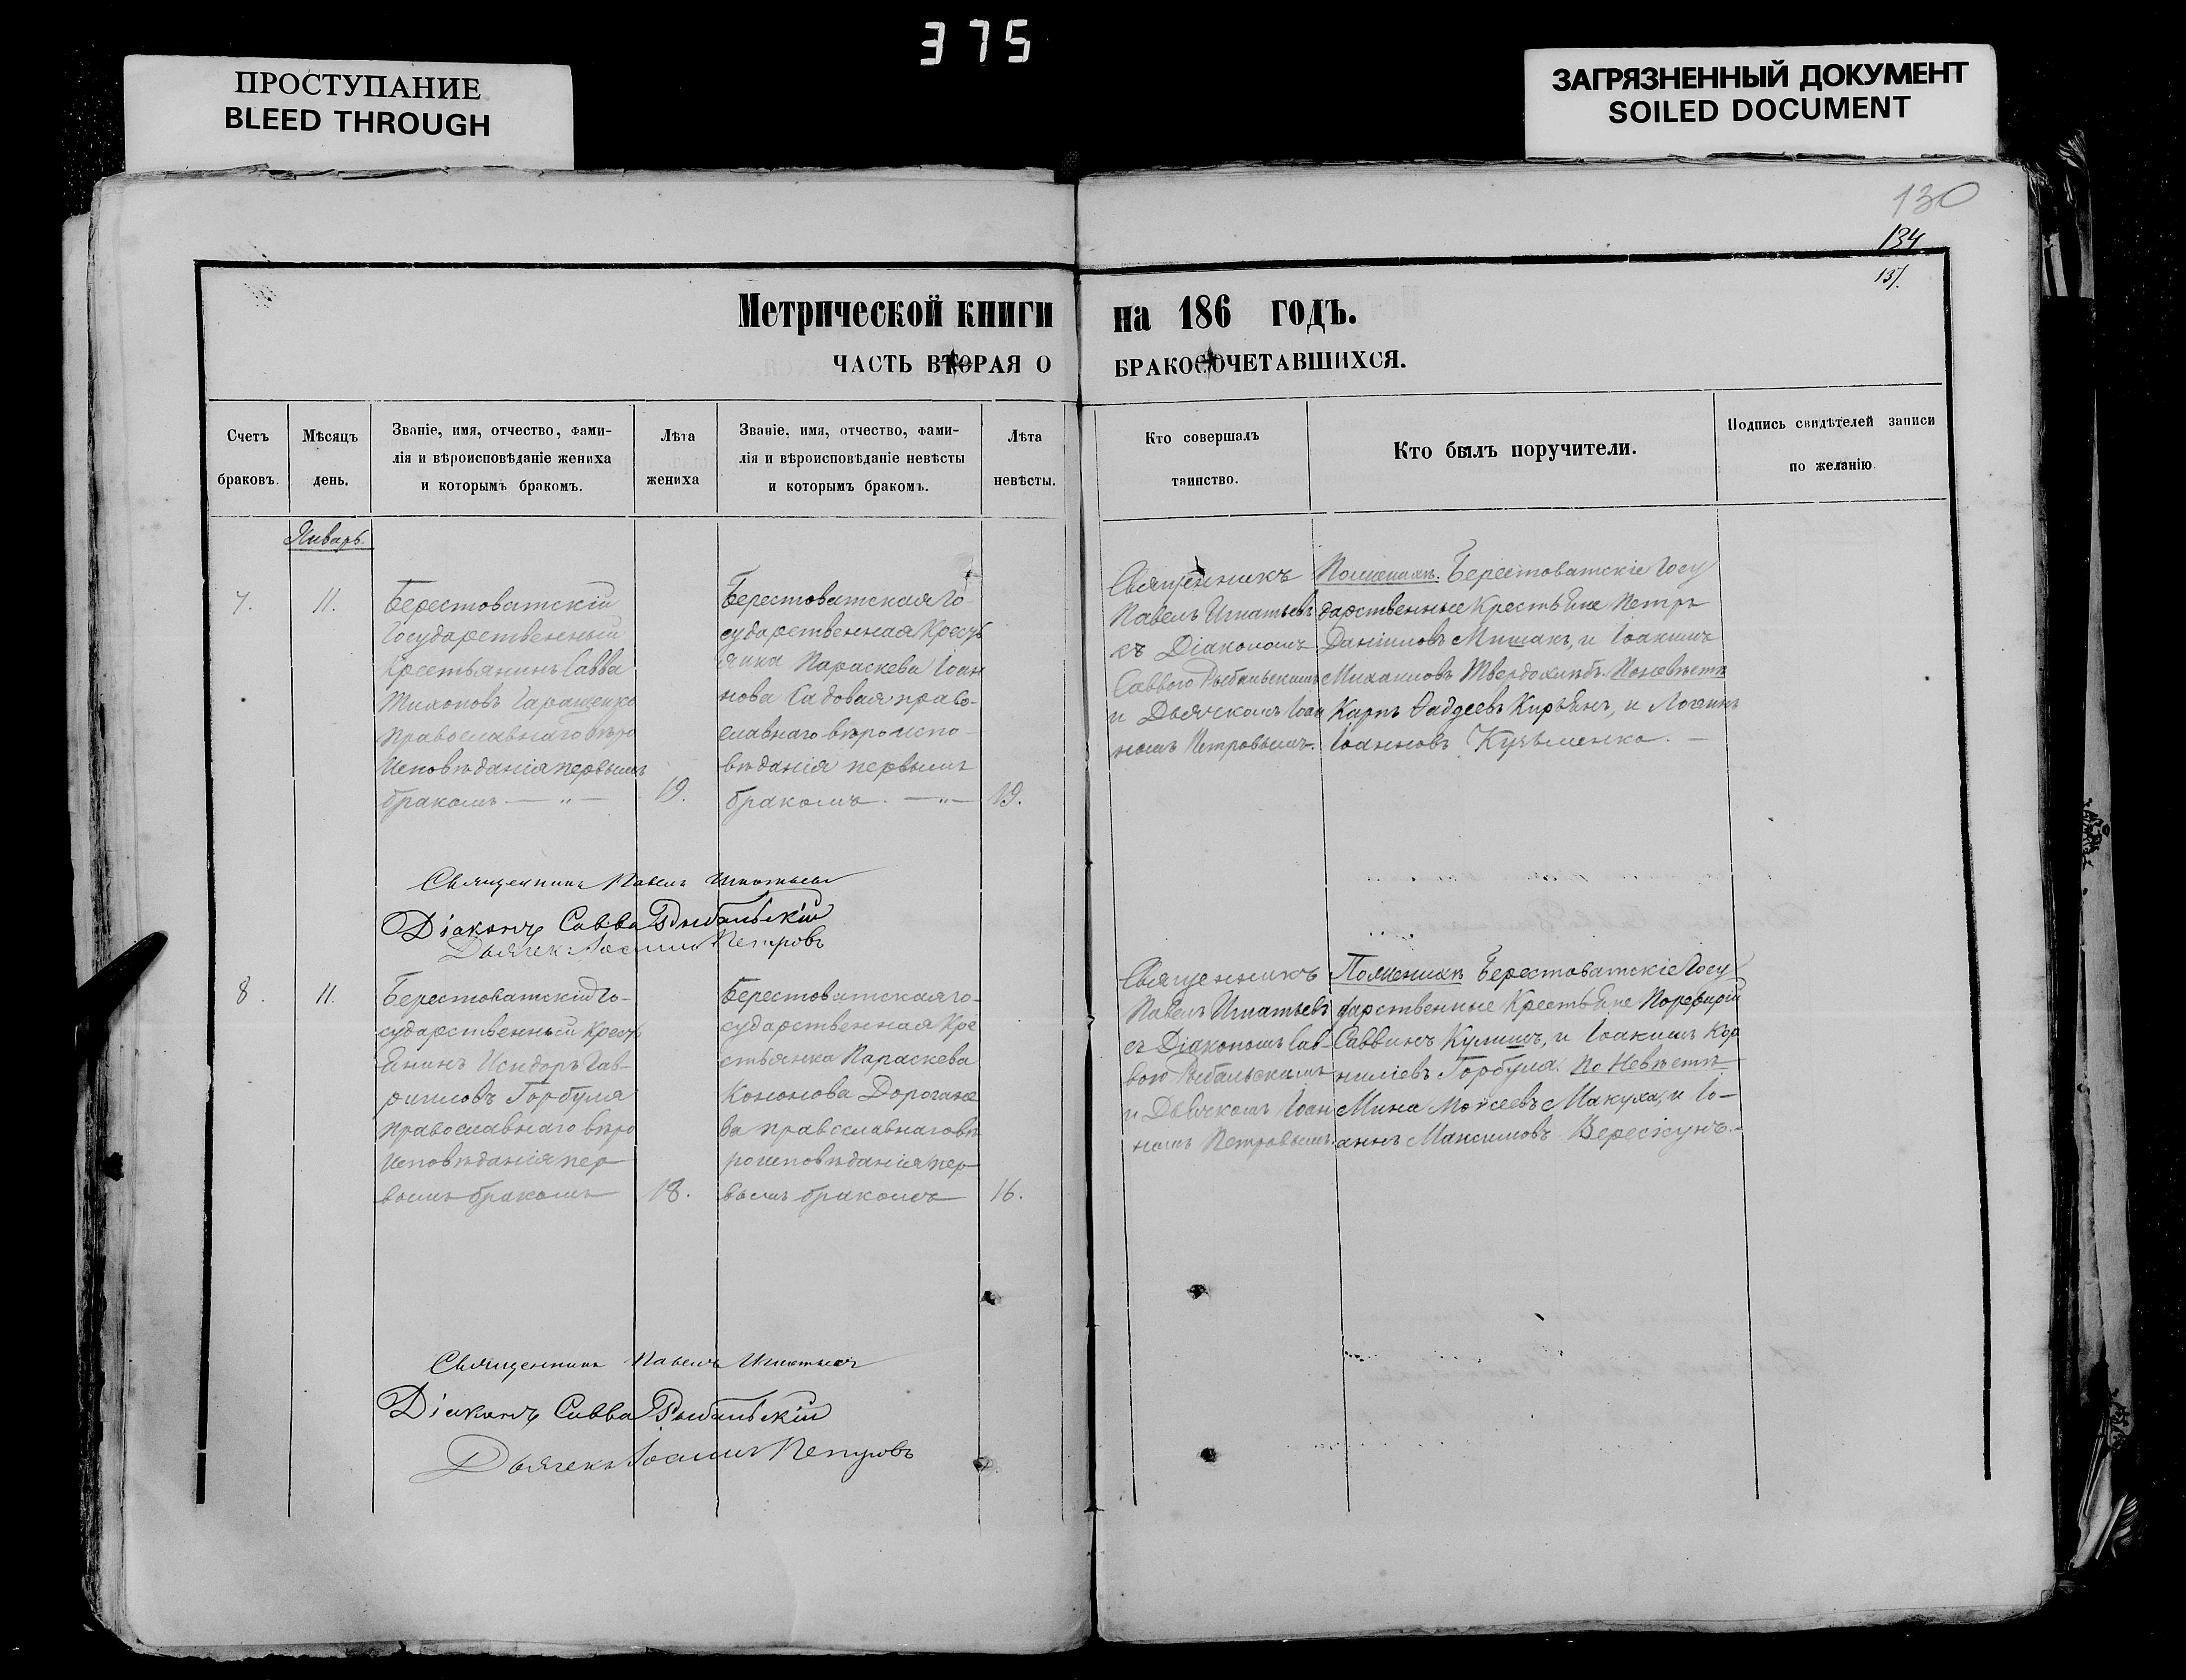 375
ПРОСТУПАНИЕ
BLEED THROUGH
ЗАГРЯЗНЕННЫЙ ДОКУМЕНТ
SOILED DOCUMENT
130
134
137.
Метрической книги на 186 годъ.
ЧАСТЬ ВТОРАЯ О БРАКОСОЧЕТАВШИХСЯ.
Счетъ
браковъ.
Мѣсяцъ
день.
Званіе, имя, отчество, фами-
лія и вѣроисповѣданіе жениха
и которымъ бракомъ.
Лѣта
жениха
Званіе, имя, отчество, фами-
лія и вѣроисповѣданіе невѣсты
и которымъ бракомъ.
Лѣта
невѣсты.
Кто совершалъ
таинство.
Кто былъ поручители.
Подпись свидѣтелей записи
по желанію.
Январь.
7.
11.
Берестоватскій
Государственный
Крестьянинъ Савва
Тихоновъ Гаращенко
православнаго вѣро
исповѣданія первымъ
бракомъ. — „ —
19.
Берестоватская Го-
сударственная Кресть
янка Параскева Іоан
нова Садовая право-
славнаго вѣроиспо-
вѣданія первымъ
бракомъ. — „ —
19.
Священникъ
Павелъ Игнатьевъ
съ Діакономъ
Саввою Рыбальскимъ
и Дьячкомъ Іоан
номъ Петровымъ.
По женихѣ: Берестоватскіе Госу
дарственные Крестьяне Петръ
Даніиловъ Мишакъ, и Іоакимъ
Михаиловъ Твердохлѣбъ. По невѣстѣ
Карпъ Фаддеевъ Кирьянъ, и Логинъ
Іоанновъ Кузьменко. —
Священникъ Павелъ Игнатьевъ
Діаконъ Савва Рыбальскій
Дьячекъ Іоаннъ Петровъ
8.
11.
Берестоватскій Го-
сударственный Кресть
янинъ Исидоръ Гав-
рииловъ Горбуля
православнаго вѣро
исповѣданія пер-
вымъ бракомъ
18.
Берестоватская го-
сударственная Кре
стьянка Параскева
Кононова Дорогане
ва православнаго вѣ
роисповѣданія пер-
вымъ бракомъ
16.
Священникъ
Павелъ Игнатьевъ
съ Діакономъ Сав-
вою Рыбальскимъ
и Дьячкомъ Іоан
номъ Петровымъ.
По женихѣ Берестоватскіе Госу
дарственные Крестьяне Порфирій
Саввинъ Кулишъ, и Іоакимъ Кор
ниліевъ Горбуля. По Невѣстѣ
Мина Моѵсеевъ Макуха, и Іо-
аннъ Максимовъ Верескунъ.-
Священникъ Павелъ Игнатьевъ
Діаконъ Савва Рыбальскій
Дьячекъ Іоаннъ Петровъ